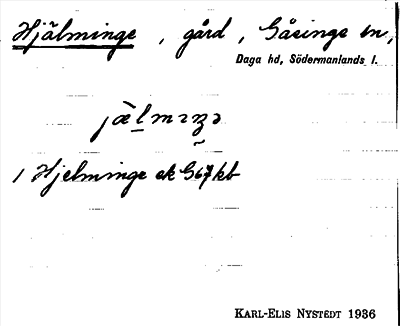 Hjälminge, gård, Gåsinge sn,
Daga hd, Södermanlands l.
1 Hjelminge ek G67 kb
KARL-ELIS NYSTEDT 1936